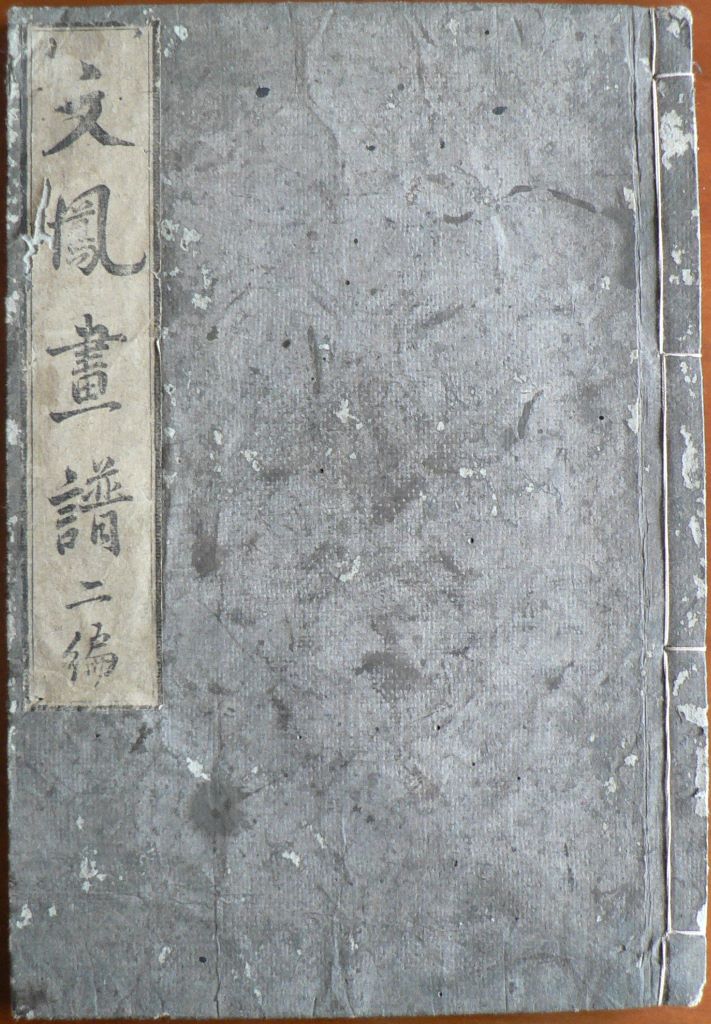 文鳳畫譜二編